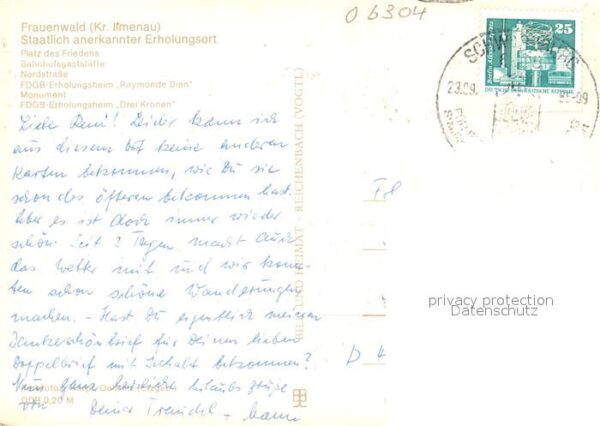 06304
Frauenwald (Kr. Ilmenau)
Staatlich anerkannter Erholungsort
Platz des Friedens
Bahnhofsgaststätte
Nordstraße
FDGB-Erholungsheim „Raymonde Dien"
Monument
FDGB-Erholungsheim „Drei Kronen"
25
DEUTSCHE DEMOKRATISCHE REPUBLIK
23.09.
-09
Liebe Reni! Leider kann ich
aus diesem Ort keine anderen
Karten bekommen, wie Du sie
schon des öfteren bekommen hast.
Aber es ist doch immer wieder
schön. Seit 2 Tagen macht auch
das Wetter mit und wir konn-
ten schon schöne Wanderungen
machen. - Hast Du eigentlich meinen
Dankeschönbrief für Deinen lieben
Doppelbrief mit Inhalt bekommen?
Nun ganz herzliche Urlaubsgrüße
von Deiner
BILD UND HEIMAT REICHENBACH (VOGTL)
DDR 0,20 M
privacy protection
Datenschutz